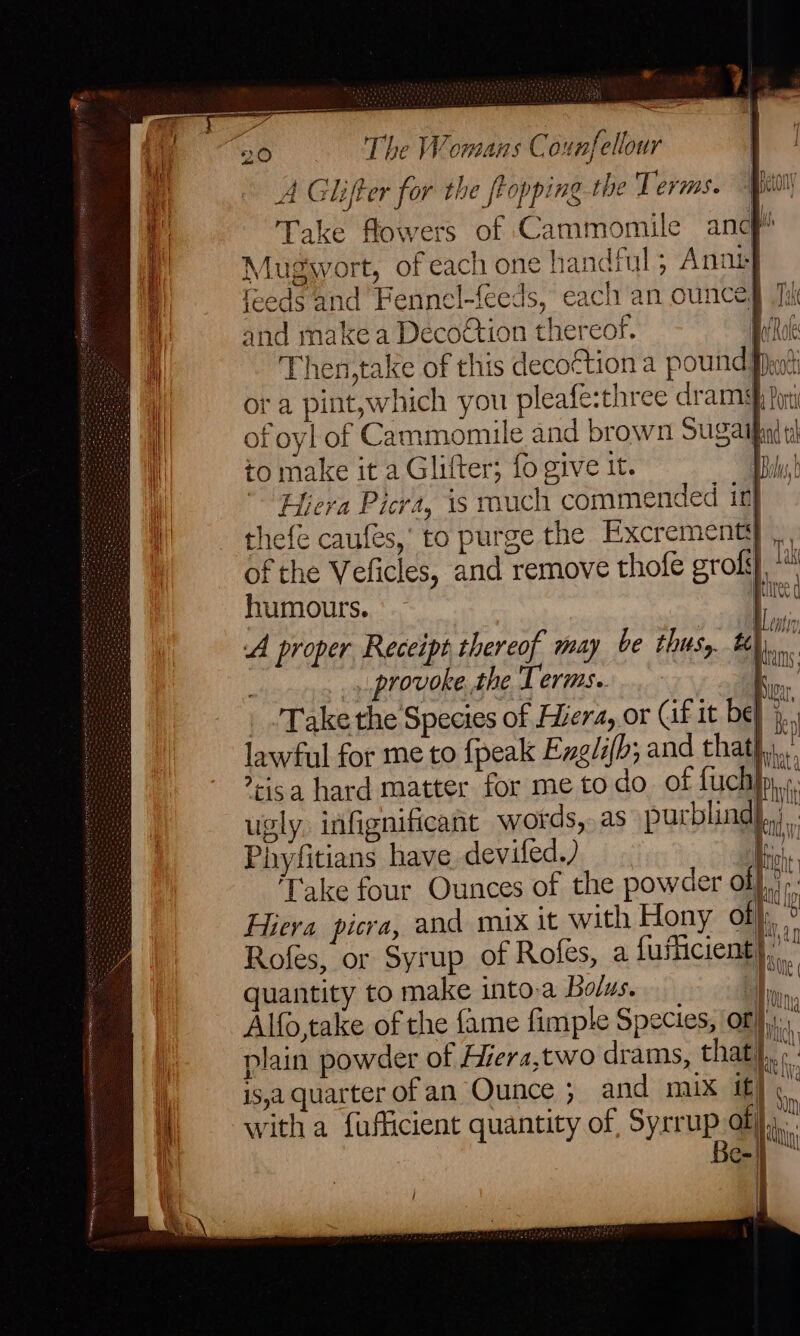 20 The Womans Counſellour
A Gliſter for the ſtopping the Terms.
Take flowers of Cammomile and
Mugwort, of each one handful; Annis-
ſeeds and Fennel-ſeeds, each an ounce,
and make a Decoction thereof.
Then,take of this decoction a pound
or a pint,which you pleaſe:three drams
of oyl of Cammomile and brown Sugar
to make it a Gliſter; ſo give it.
Hiera Picra, is much commended in
theſe cauſes, to purge the Excrements
of the Veſicles, and remove thoſe groſs
humours.
A proper Receipt thereof may be thus, to
provoke the Terms.
Take the Species of Hiera, or (if it be
lawful for me to ſpeak Engliſh; and that
'tis a hard matter for me to do of ſuch
ugly inſignificant words, as purblind
Phyſitians have deviſed.)
Take four Ounces of the powder of
Hiera picra, and mix it with Hony of
Roſes, or Syrup of Roſes, a ſufficient
quantity to make into a Bolus.
Alſo,take of the ſame ſimple Species, or
plain powder of Hiera,two drams, that
is,a quarter of an Ounce; and mix it
with a ſufficient quantity of Syrrup of
Be-